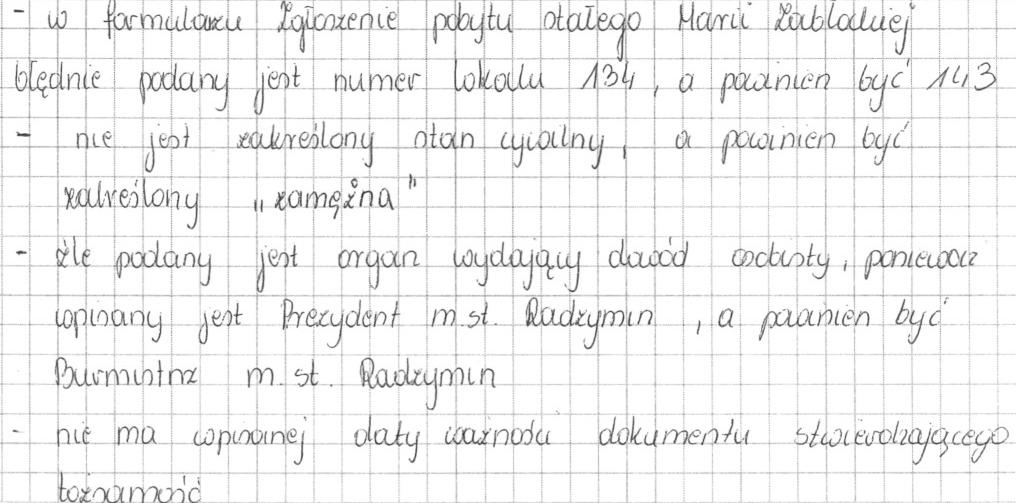 - w formularzu Zgłoszenie pobytu stałego Marii Zabłockiej
błędnie podany jest numer lokalu 134, a powinien być 143
- nie jest zakreślony stan cywilny, a powinien być
zakreślony „zamężna"
- źle podany jest organ wydający dowód osobisty, ponieważ
wpisany jest Prezydent m.st. Radzymin, a powinien być
Burmistrz m. st. Radzymin
- nie ma wpisanej daty ważności dokumentu stwierdzającego
tożsamość